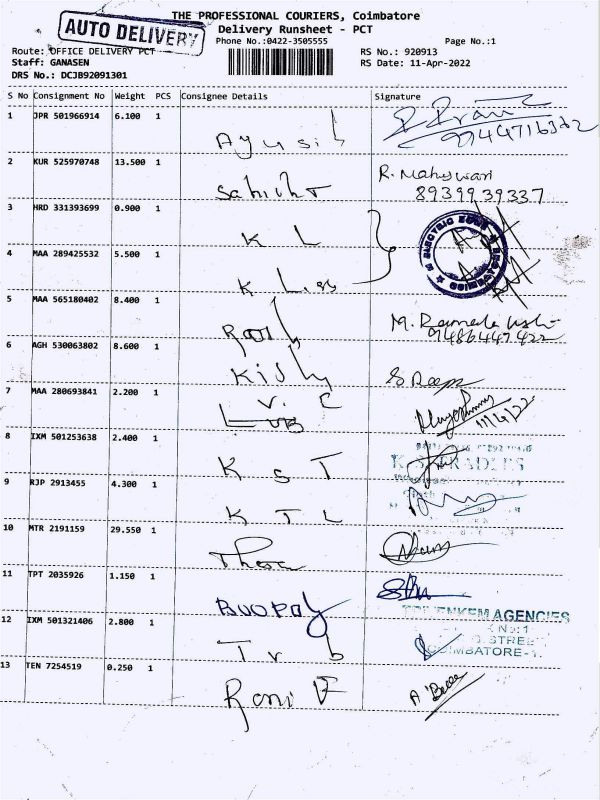 THE PROFESSIONAL COURIERS, Coimbatore
AUTO DELIVERY
Delivery Runsheet - PCT
Phone No.:0422-3505555
Page No.:1
Route: OFFICE DELIVERY PCT
RS No.: 920913
Staff: GANASEN
RS Date: 11-Apr-2022
DRS No.: DCJB92091301
S No Consignment No Weight PCS Consignee Details Signature
1 JPR 501966914 6.100 1
Ayush
2 KUR 525970748 13.500 1 R. Maheswari
8939939337
3 HRD 331393699 0.900 1
K L
ELECTRIC
COIMBATORE
4 MAA 289425532 5.500 1
K
5 MAA 565180402 8.400 1
M.
9486447422
6 AGH 530063802 8.600 1
7 MAA 280693841 2.200 1
V. C
11/4/22
8 IXM 501253638 2.400 1
K S T
9 RJP 2913455 4.300 1
K T L
10 MTR 2191159 29.550 1
11 TPT 2035926 1.150 1
AGENCIES
12 IXM 501321406 2.800 1
STREET
COIMBATORE-1.
T r b
13 TEN 7254519 0.250 1
Rani F